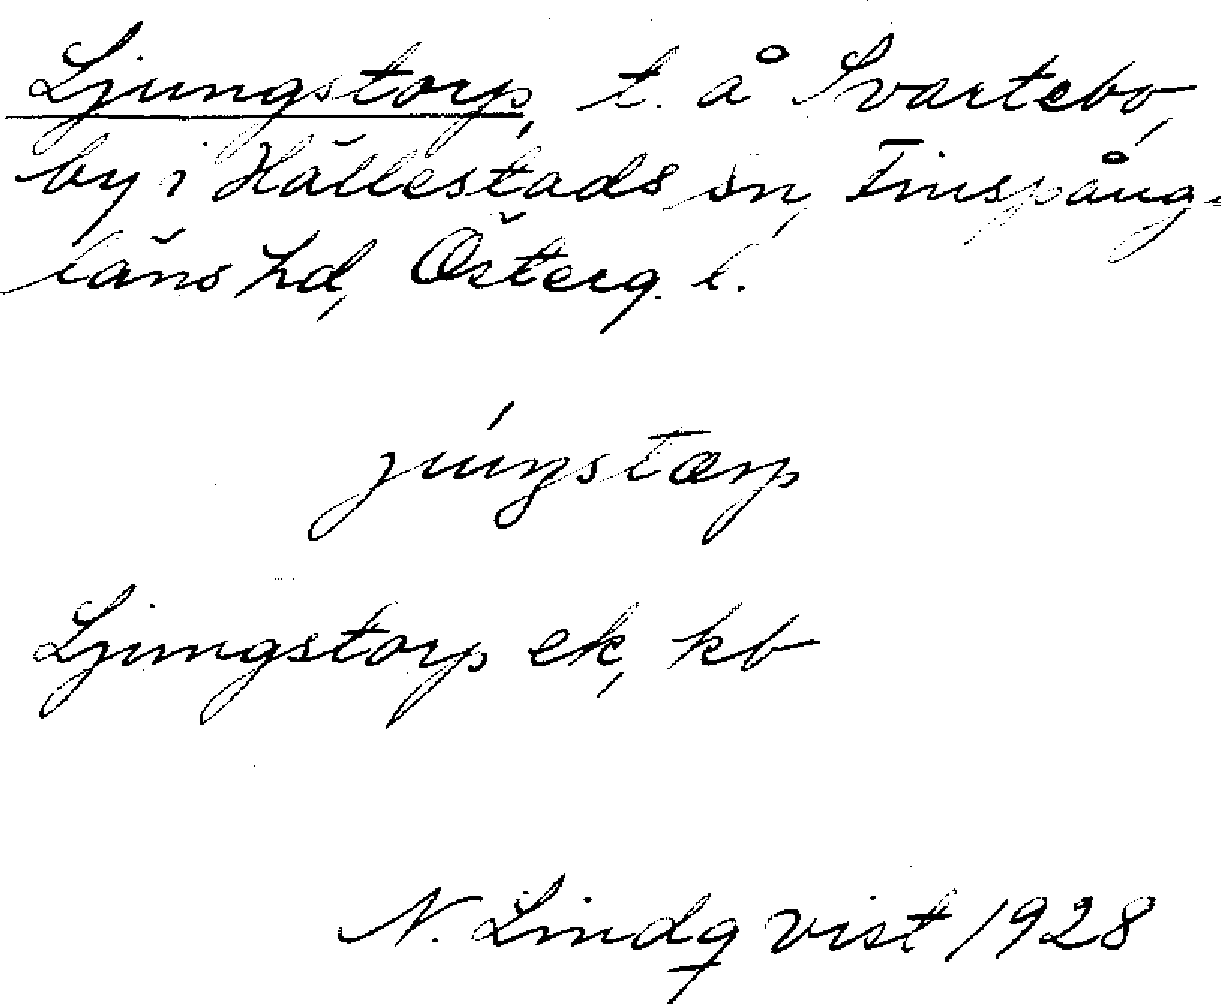 Ljungstorp, t. å Svartebo,
by i Hällestads sn, Finspång-
läns hd, Österg. l.
júŋstærp
Ljungstorp ek, kb
N. Lindqvist 1928